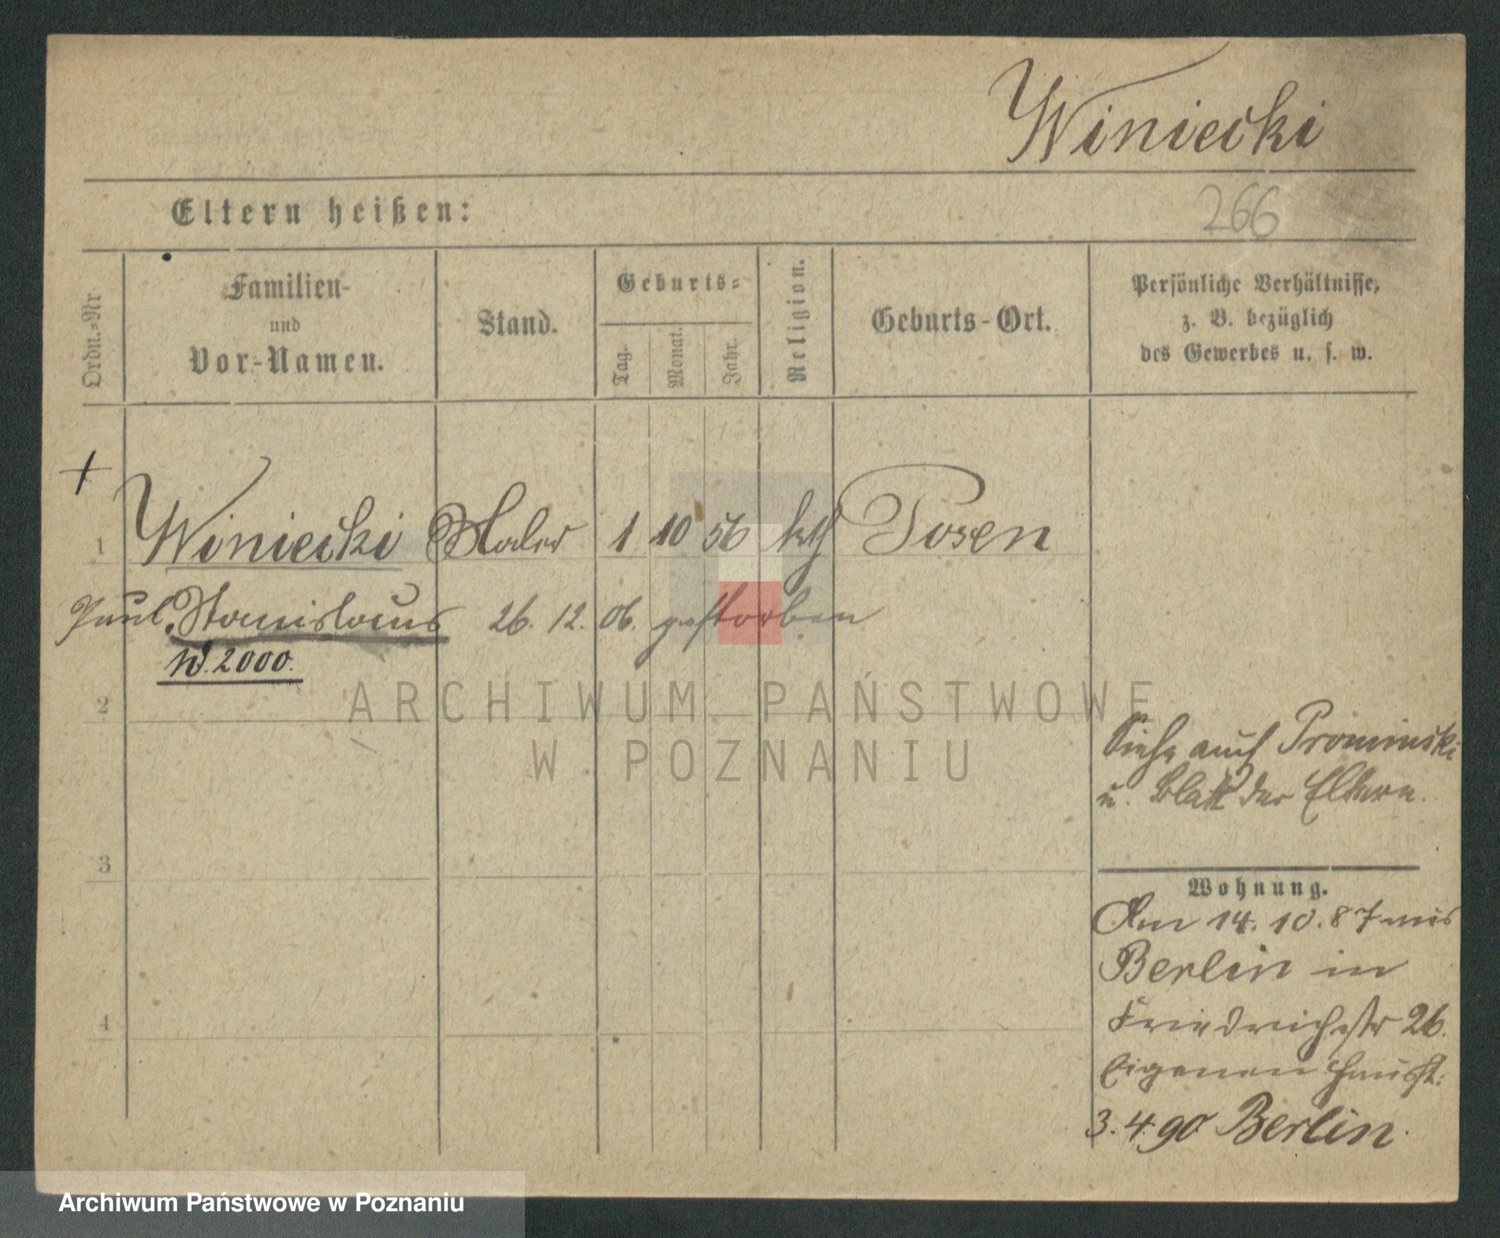 Winiecki
Eltern heißen:
266
Ordn.=Nr
Familien-
und
Vor-Namen.
Stand.
Geburts=
Tag.
Monat.
Jahr.
Religion.
Geburts-Ort.
Persönliche Verhältnisse,
z. B. bezüglich
des Gewerbes u. s. w.
+
1 Winiecki Maler 1 10 56 kth Posen
Paul. Stanislaus 26. 12. 06. gestorben
W. 2000.
2
3
4
Siehe auch Prominski
u. Blatt der Eltern.
Wohnung.
Am 14. 10. 87 aus
Berlin in
Friedrichstr 26.
Eigenen Hausst.
3. 4. 90 Berlin.
ARCHIWUM PAŃSTWOWE
W POZNANIU
Archiwum Państwowe w Poznaniu